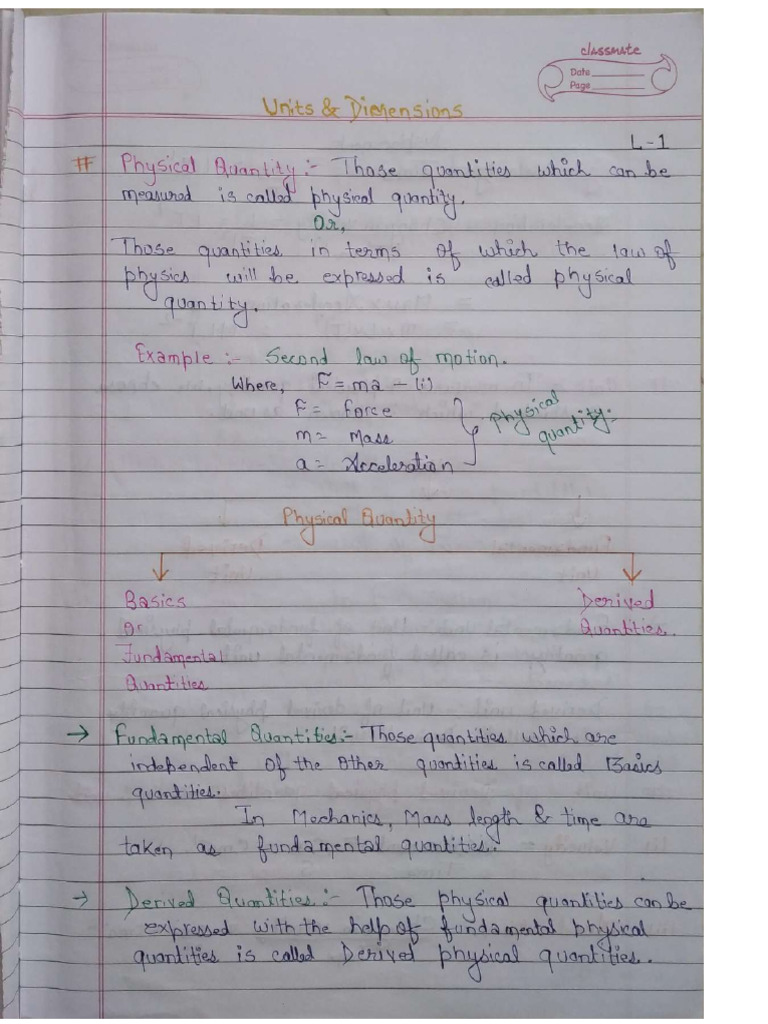 classmate
Date
Page
Units & Dimensions
L-1
# Physical Quantity :- Those quantities which can be
measured is called physical quantity.
Or,
Those quantities in terms of which the law of
physics will be expressed is called physical
quantity.
Example :- Second law of motion.
Where, F = ma - (i)
F = force
m = Mass
a = Acceleration
Physical
quantity:-
Physical Quantity
Basics
Or
Fundamental
Quantities
Derived
Quantities.
→ Fundamental Quantities:- Those quantities which are
independent of the other quantities is called Basics
quantities.
In Mechanics, Mass length & time are
taken as fundamental quantities.
→ Derived Quantities :- Those physical quantities can be
expressed with the help of fundamental physical
quantities is called Derived physical quantities.